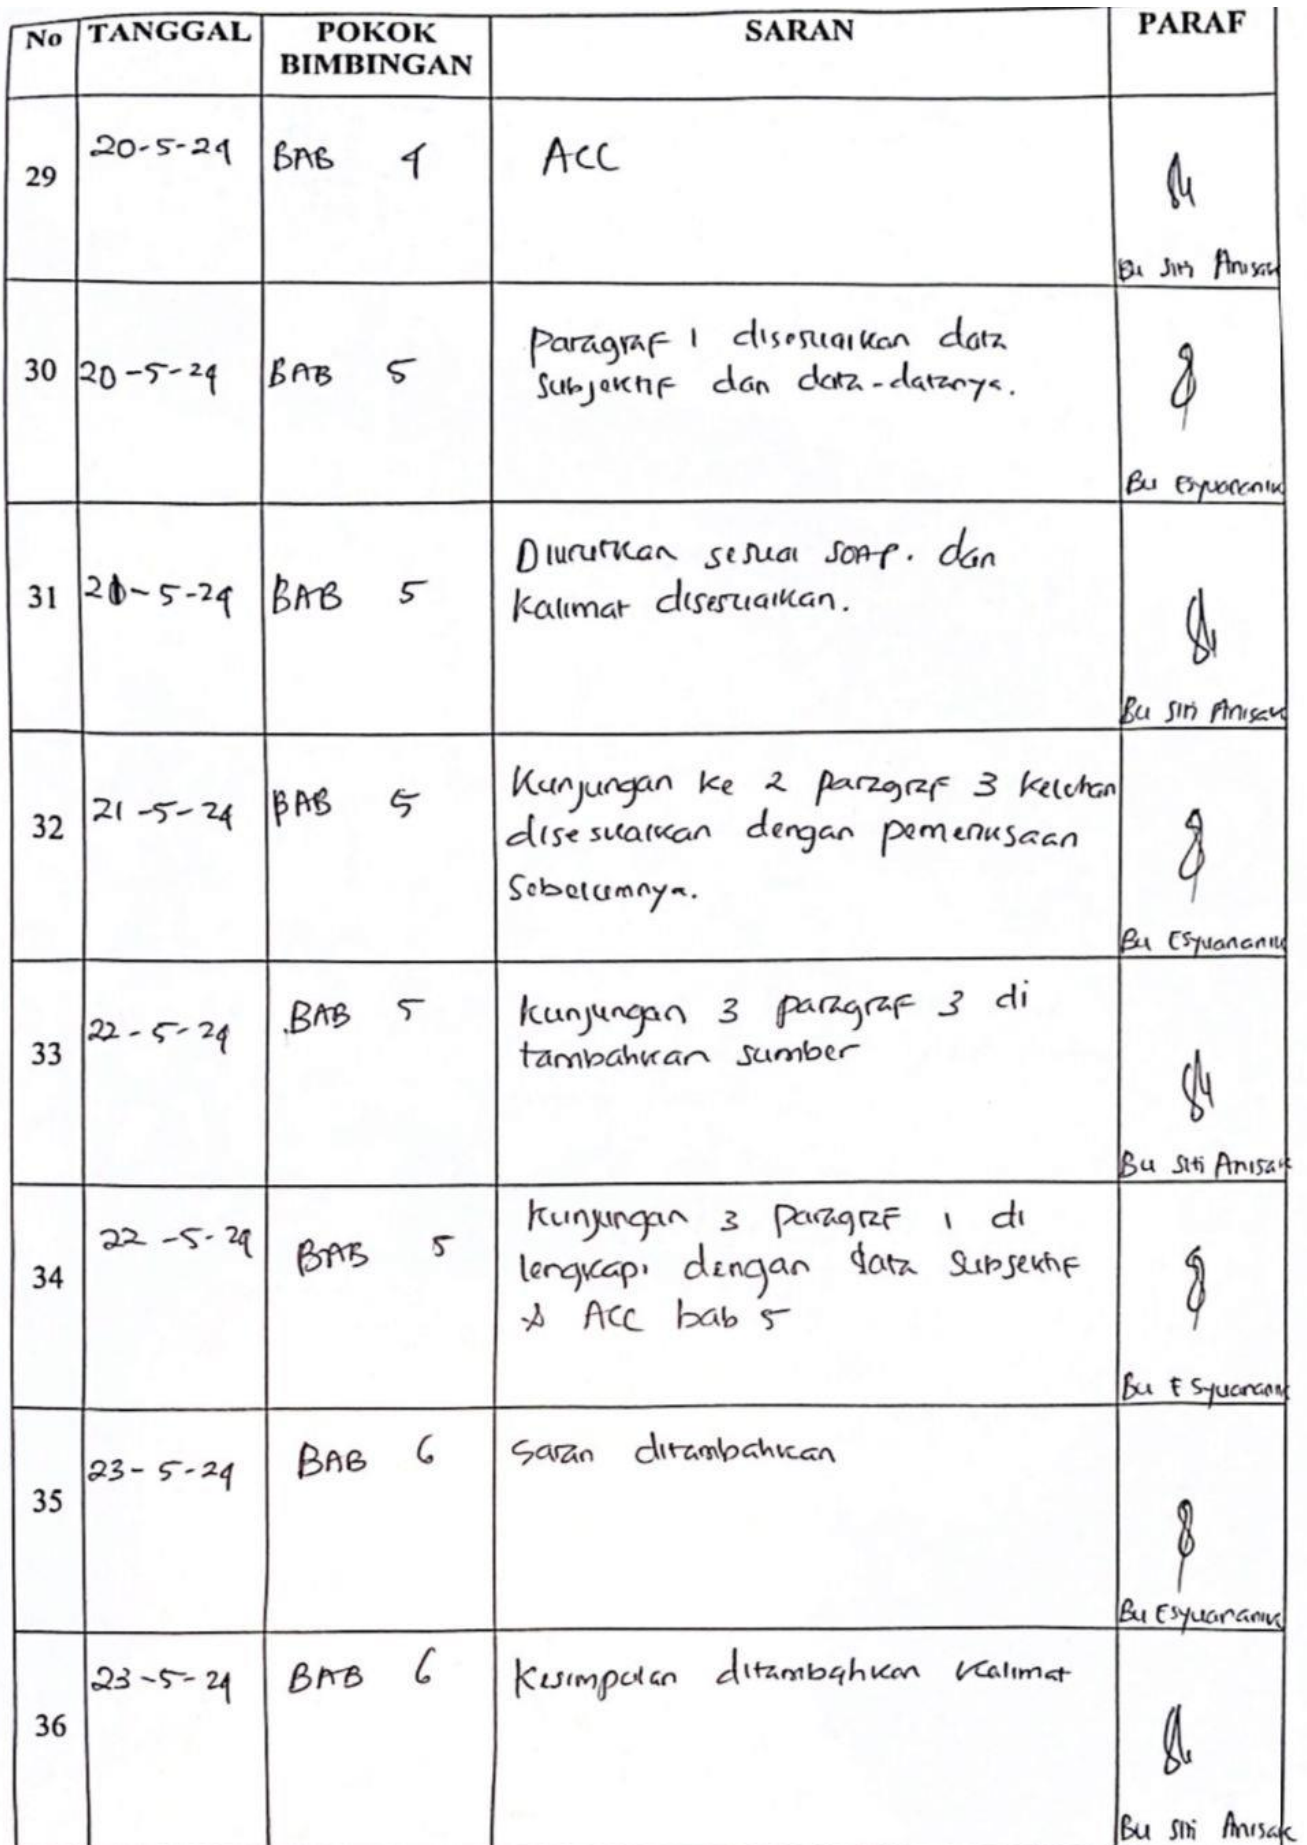 No TANGGAL POKOK BIMBINGAN SARAN PARAF
29 20-5-24 BAB 4 ACC
Bu Siti Anisak
30 20-5-24 BAB 5 Paragraf 1 disesuaikan data
subjektif dan data-datanya.
Bu Esyuananik
31 21-5-24 BAB 5 Diurutkan sesuai SOAP. dan
kalimat disesuaikan.
Bu Siti Anisak
32 21-5-24 BAB 5 Kunjungan ke 2 paragraf 3 keluhan
disesuaikan dengan pemeriksaan
sebelumnya.
Bu Esyuananik
33 22-5-24 BAB 5 Kunjungan 3 paragraf 3 di
tambahkan sumber
Bu Siti Anisak
34 22-5-24 BAB 5 Kunjungan 3 paragraf 1 di
lengkapi dengan data subjektif
& ACC bab 5
Bu Esyuananik
35 23-5-24 BAB 6 Saran ditambahkan
Bu Esyuananik
36 23-5-24 BAB 6 Kesimpulan ditambahkan kalimat
Bu Siti Anisak